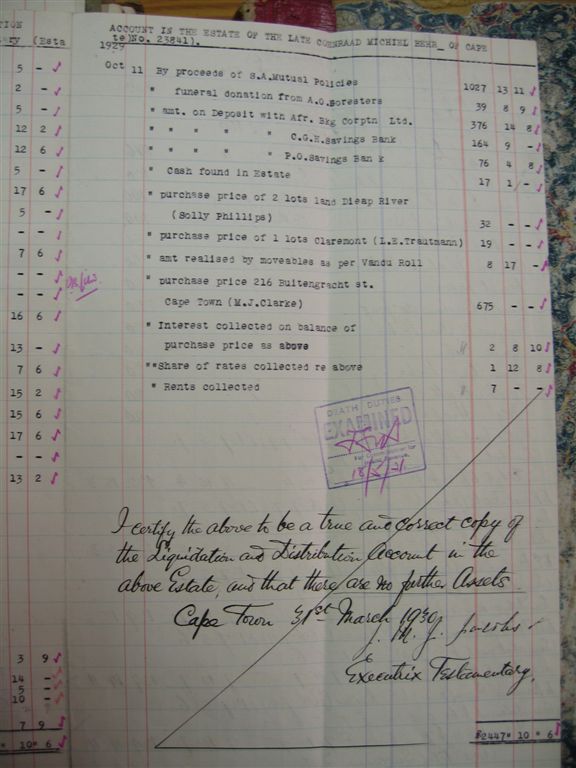 TION
ary (Esta
5 -
2 -
5 -
12 2
12 6
5 -
17 6
5 -
- -
7 6
- -
- -
16 6
13 -
7 6
15 2
15 6
17 6
- -
13 2
3 9
14 -
5 -
10 -
7 9
" 10" 6
ACCOUNT IN THE ESTATE OF THE LATE COENRAAD MICHIEL BEHR_ OF CAPE
te)No. 23841).
1929
Oct 11 By proceeds of S.A.Mutual Policies 1027 13 11
" funeral donation from A.O.Foresters 39 8 9
" amt. on Deposit with Afr. Bkg Corptn Ltd. 376 14 8
" " " " " C.G.H.Savings Bank 164 9 -
" " " " " P.O.Savings Bank 76 4 8
" Cash found in Estate 17 1 -
" purchase price of 2 lots land Dieap River
(Solly Phillips) 32 - -
" purchase price of 1 lots Claremont (L.E.Trautmann) 19 - -
" amt realised by moveables as per Vandu Roll 8 17 -
" purchase price 216 Buitengracht st.
Cape Town (M.J.Clarke) 675 - -
" Interest collected on balance of
purchase price as above 2 8 10
""Share of rates collected re above 1 12 8
" Rents collected 7 - -
DEATH DUTIES
EXAMINED
For Commissioner for
Inland Revenue.
I certify the above to be a true and correct copy of
the Liquidation and Distribution Account in the
above Estate, and that there are no further Assets.
Cape Town 31st March 1930
Executrix Testamentary.
£2447" 10 " 6